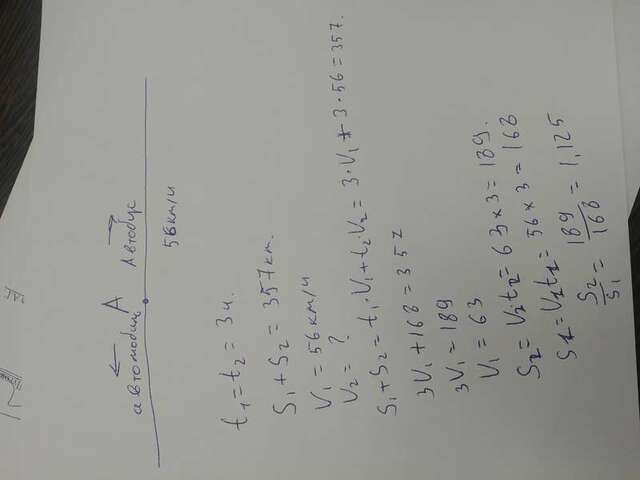 А
автомобиль Автобус
56км/ч
t₁ = t₂ = 3ч.
S₁ + S₂ = 357км.
V₁ = 56км/ч
V₂ = ?
S₁ + S₂ = t₁·V₁ + t₂·V₂ = 3·V₁ + 3·56 = 357.
3V₁ + 168 = 357
3V₁ = 189
V₁ = 63
S₂ = V₂·t₂ = 63 × 3 = 189.
S₁ = V₁t₁ = 56 × 3 = 168
S₂/S₁ = 189/168 = 1,125